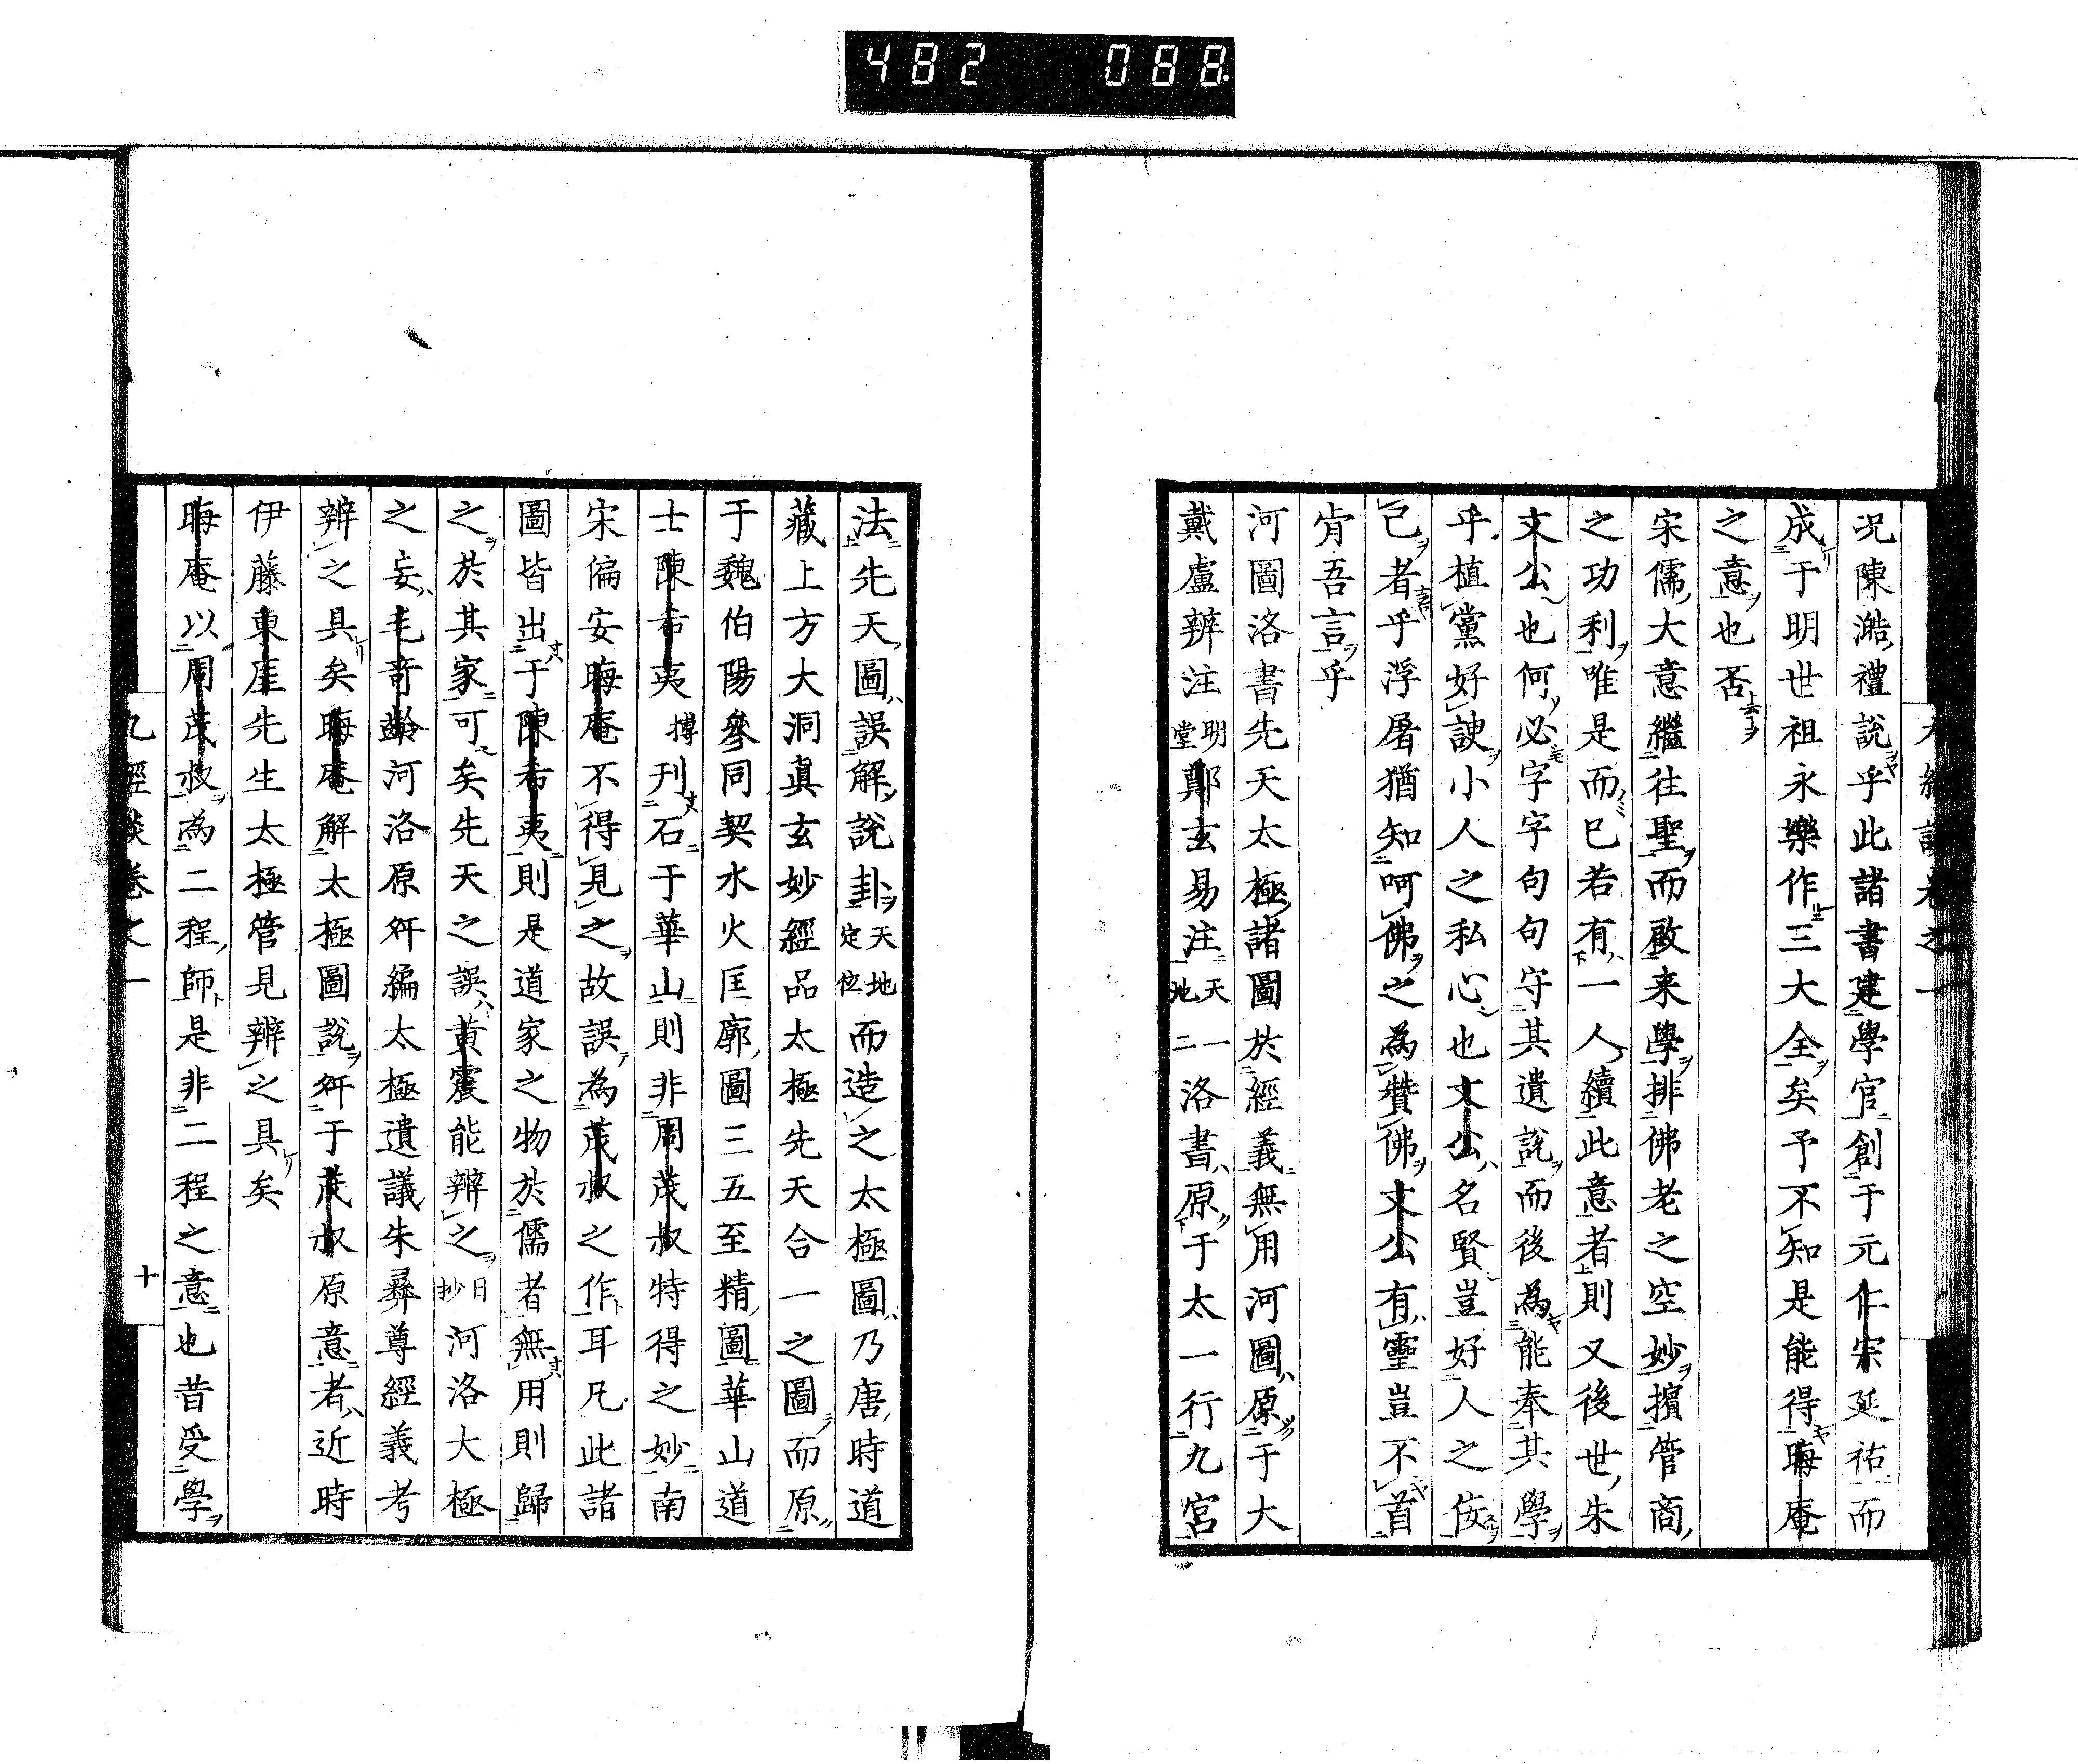 482 088
九經談卷之一
況陳澔禮說乎此諸書建學官創于元仁宗延祐而
成于明世祖永樂作三大全矣予不知是能得晦庵
之意也否
宋儒大意繼往聖而啟来學排佛老之空妙擯管商
之功利唯是而已若有一人續此意者則又後世朱
文公也何必字字句句守其遺說而後為能奉其學
乎植黨好諛小人之私心也文公名賢豈好人之佞
己者乎浮屠猶知呵佛之為贊佛文公有靈豈不首
肯吾言乎
河圖洛書先天太極諸圖於經義無用河圖原于大
戴盧辨注明堂鄭玄易注天一地二洛書原于太一行九宮
法先天圖誤解說卦天地定位而造之太極圖乃唐時道
藏上方大洞真玄妙經品太極先天合一之圖而原
于魏伯陽參同契水火匡廓圖三五至精圖華山道
士陳希夷搏刊石于華山則非周茂叔特得之妙南
宋偏安晦庵不得見之故誤為茂叔之作耳凡此諸
圖皆出于陳希夷則是道家之物於儒者無用則歸
之於其家可矣先天之誤黃震能辨之日抄河洛大極
之妄毛奇齡河洛原舛編太極遺議朱彝尊經義考
辨之具矣晦庵解太極圖說舛于茂叔原意者近時
伊藤東厓先生太極管見辨之具矣
晦庵以周茂叔為二程師是非二程之意也昔受學
九經談卷之一
十